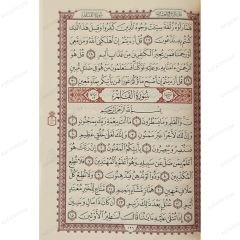 فَلَمَّا رَأَوْهُ زُلْفَةً سِيئَتْ وُجُوهُ الَّذِينَ كَفَرُوا وَقِيلَ هَٰذَا الَّذِي
كُنتُم بِهِ تَدَّعُونَ ٢٧ قُلْ أَرَءَيْتُمْ إِنْ أَهْلَكَنِيَ اللَّهُ وَمَن مَّعِيَ
أَوْ رَحِمَنَا فَمَن يُجِيرُ الْكَافِرِينَ مِنْ عَذَابٍ أَلِيمٍ ٢٨ قُلْ هُوَ
الرَّحْمَٰنُ ءَامَنَّا بِهِ وَعَلَيْهِ تَوَكَّلْنَا فَسَتَعْلَمُونَ مَنْ هُوَ فِي ضَلَالٍ
مُّبِينٍ ٢٩ قُلْ أَرَءَيْتُمْ إِنْ أَصْبَحَ مَاؤُكُمْ غَوْرًا فَمَن يَأْتِيكُم بِمَاءٍ مَّعِينٍ ٣٠
سُورَةُ الْقَلَمِ
بِسْمِ اللَّهِ الرَّحْمَٰنِ الرَّحِيمِ
ن وَالْقَلَمِ وَمَا يَسْطُرُونَ ١ مَا أَنتَ بِنِعْمَةِ رَبِّكَ بِمَجْنُونٍ ٢ وَإِنَّ
لَكَ لَأَجْرًا غَيْرَ مَمْنُونٍ ٣ وَإِنَّكَ لَعَلَىٰ خُلُقٍ عَظِيمٍ ٤ فَسَتُبْصِرُ
وَيُبْصِرُونَ ٥ بِأَييِّكُمُ الْمَفْتُونُ ٦ إِنَّ رَبَّكَ هُوَ أَعْلَمُ بِمَن
ضَلَّ عَن سَبِيلِهِ وَهُوَ أَعْلَمُ بِالْمُهْتَدِينَ ٧ فَلَا تُطِعِ
الْمُكَذِّبِينَ ٨ وَدُّوا لَوْ تُدْهِنُ فَيُدْهِنُونَ ٩ وَلَا تُطِعْ كُلَّ
حَلَّافٍ مَّهِينٍ ١٠ هَمَّازٍ مَّشَّاءٍ بِنَمِيمٍ ١١ مَّنَّاعٍ لِّلْخَيْرِ مُعْتَدٍ
أَثِيمٍ ١٢ عُتُلٍّ بَعْدَ ذَٰلِكَ زَنِيمٍ ١٣ أَن كَانَ ذَا مَالٍ وَبَنِينَ
١٤ إِذَا تُتْلَىٰ عَلَيْهِ ءَايَاتُنَا قَالَ أَسَاطِيرُ الْأَوَّلِينَ ١٥